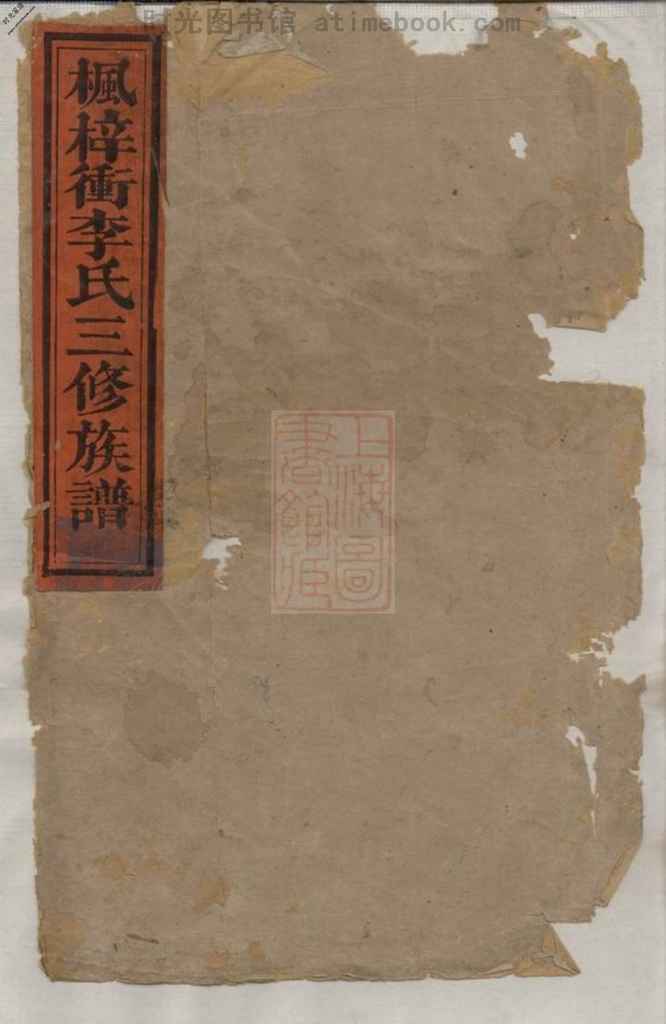 时光图书馆 atimebook.com
楓梓衝李氏三修族譜
上海圖
書館藏